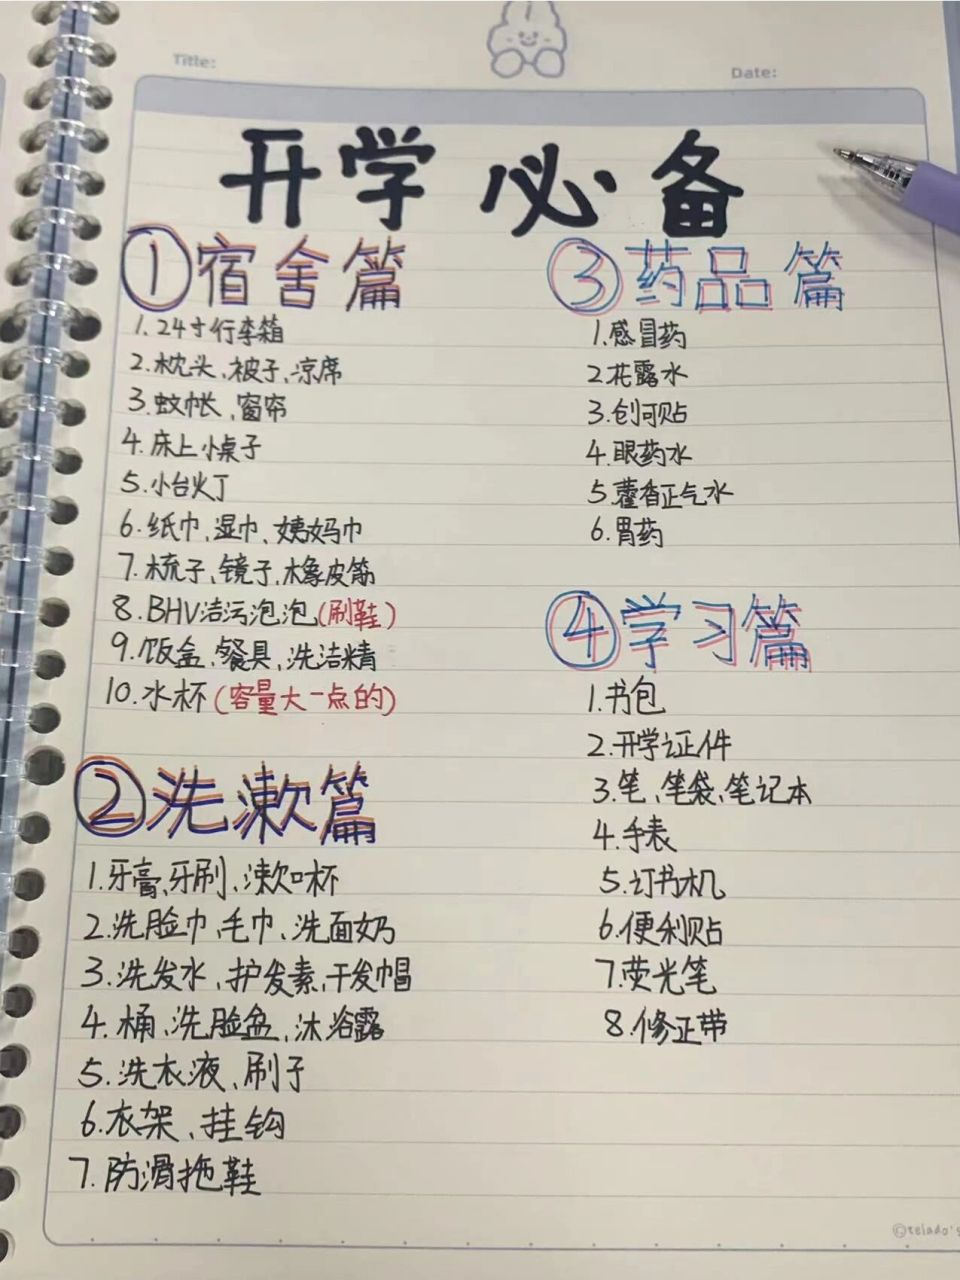 Title:
Date:
开学必备
①宿舍篇
1.24寸行李箱
2.枕头、被子、凉席
3.蚊帐、窗帘
4.床上小桌子
5.小台灯
6.纸巾、湿巾、姨妈巾
7.梳子、镜子、橡皮筋
8.BHV洁污泡泡(刷鞋)
9.饭盒、餐具、洗洁精
10.水杯(容量大一点的)
②洗漱篇
1.牙膏、牙刷、漱口杯
2.洗脸巾、毛巾、洗面奶
3.洗发水、护发素、干发帽
4.桶、洗脸盆、沐浴露
5.洗衣液、刷子
6.衣架、挂钩
7.防滑拖鞋
③药品篇
1.感冒药
2花露水
3.创可贴
4.眼药水
5.藿香正气水
6.胃药
④学习篇
1.书包
2.开学证件
3.笔、笔袋、笔记本
4.手表
5.订书机
6.便利贴
7.荧光笔
8.修正带
©telado's